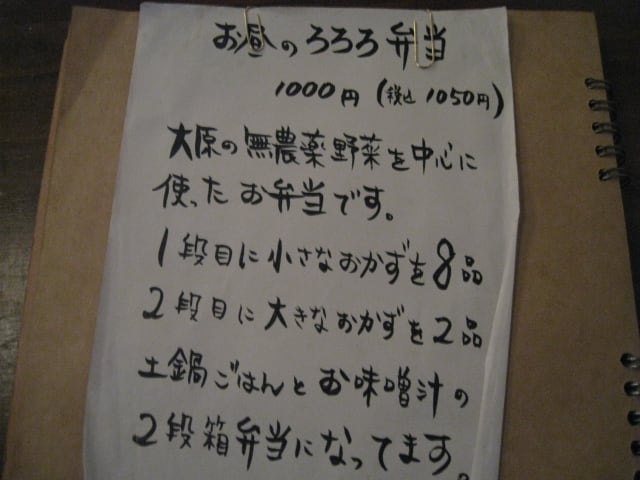 お昼のろろろ弁当
1000円(税込1050円)
大原の無農薬野菜を中心に
使ったお弁当です。
1段目に小さなおかずを8品
2段目に大きなおかずを2品
土鍋ごはんとお味噌汁の
2段箱弁当になってます。